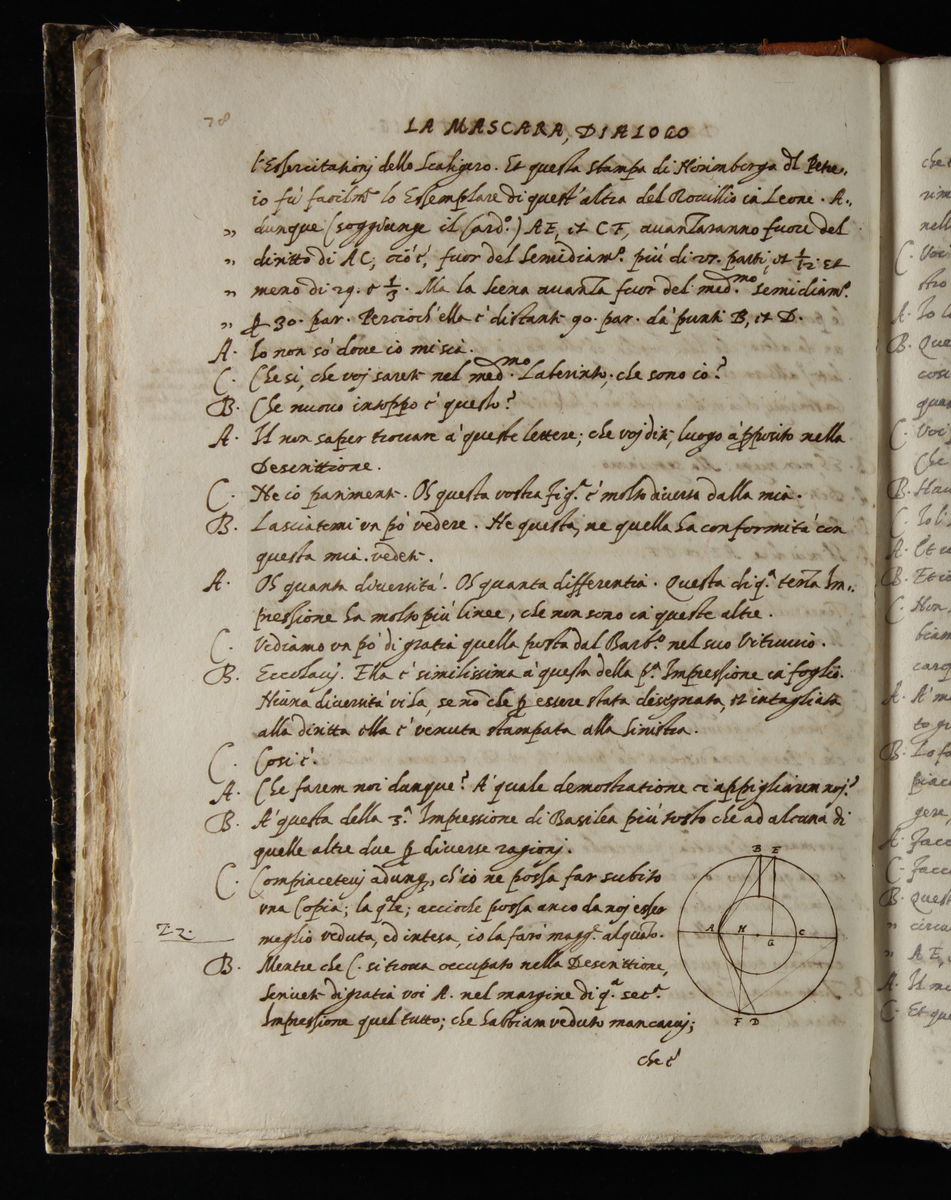 78
LA MASCARA, DIALOGO
l'Essercitationj dello Scaligero. Et questa stampa di Norimberga del Petre-
io fù facilmte lo Essemplare di quest' altra del Rovillio in Leone. A-
" dunque (soggiunge il Cardo.) AE, et CF, avanzaranno fuori del
" diritto di AC, cio' è, fuor del Semidiamo. più di 27. parti, et 1/12. et
" meno di 29. e 1/3. Ma la Scena avanza fuor del medmo. semidiamo.
" p 30. par. Percioch' ella è distante 90. par. da' punti B, et D.
A. Io non sò dove io mi sia.
C. Che si, che voj sarete nel medmo. Laberinto, che sono io?
B. Che nuovo intoppo è questo?
A. Il non saper trovare à queste lettere; che voj dite, luogo apposito nella
Descrittione.
C. Ne io parimente. Oh questa vostra figa. è molto diversa dalla mia.
B. Lasciatemi un pò vedere. Ne questa, ne quella ha conformità con
questa mia. vedete.
A. Oh quanta diversità. Oh quanta differentia. Questa di qa. terza Im-
pressione ha molto più linee, che non sono in queste altre.
C. Vediamo un pò di gratia quella posta dal Barbo. nel suo Vitruvio.
B. Eccolavi. Ella è similissima à questa della pa. Impressione in foglio.
Niuna diversità vi ha, se nō che p essere stata designata, et intagliata
alla diritta ella è venuta stampata alla Sinistra.
C. Cosi è.
A. Che farem noi dunque? A' quale demostratione ci appigliaren noj?
B. A' questa della 3a. Impressione di Basilea più tosto che ad alcuna di
quelle altre due p diverse ragionj.
C. Compiacetevj adunq, ch'io ne possa far subito
una Copia; la qle; accioche possa anco da noj esser
Z 2.
meglio veduta, ed intesa, io la farò magge. alquāto.
B. Mentre che C. si trova occupato nella Descrittione,
Scrivete di gratia voi A. nel margine di qa. seca.
Impressione quel tutto; che habbiam veduto mancarvj;
che è
B E
A H G C
F D